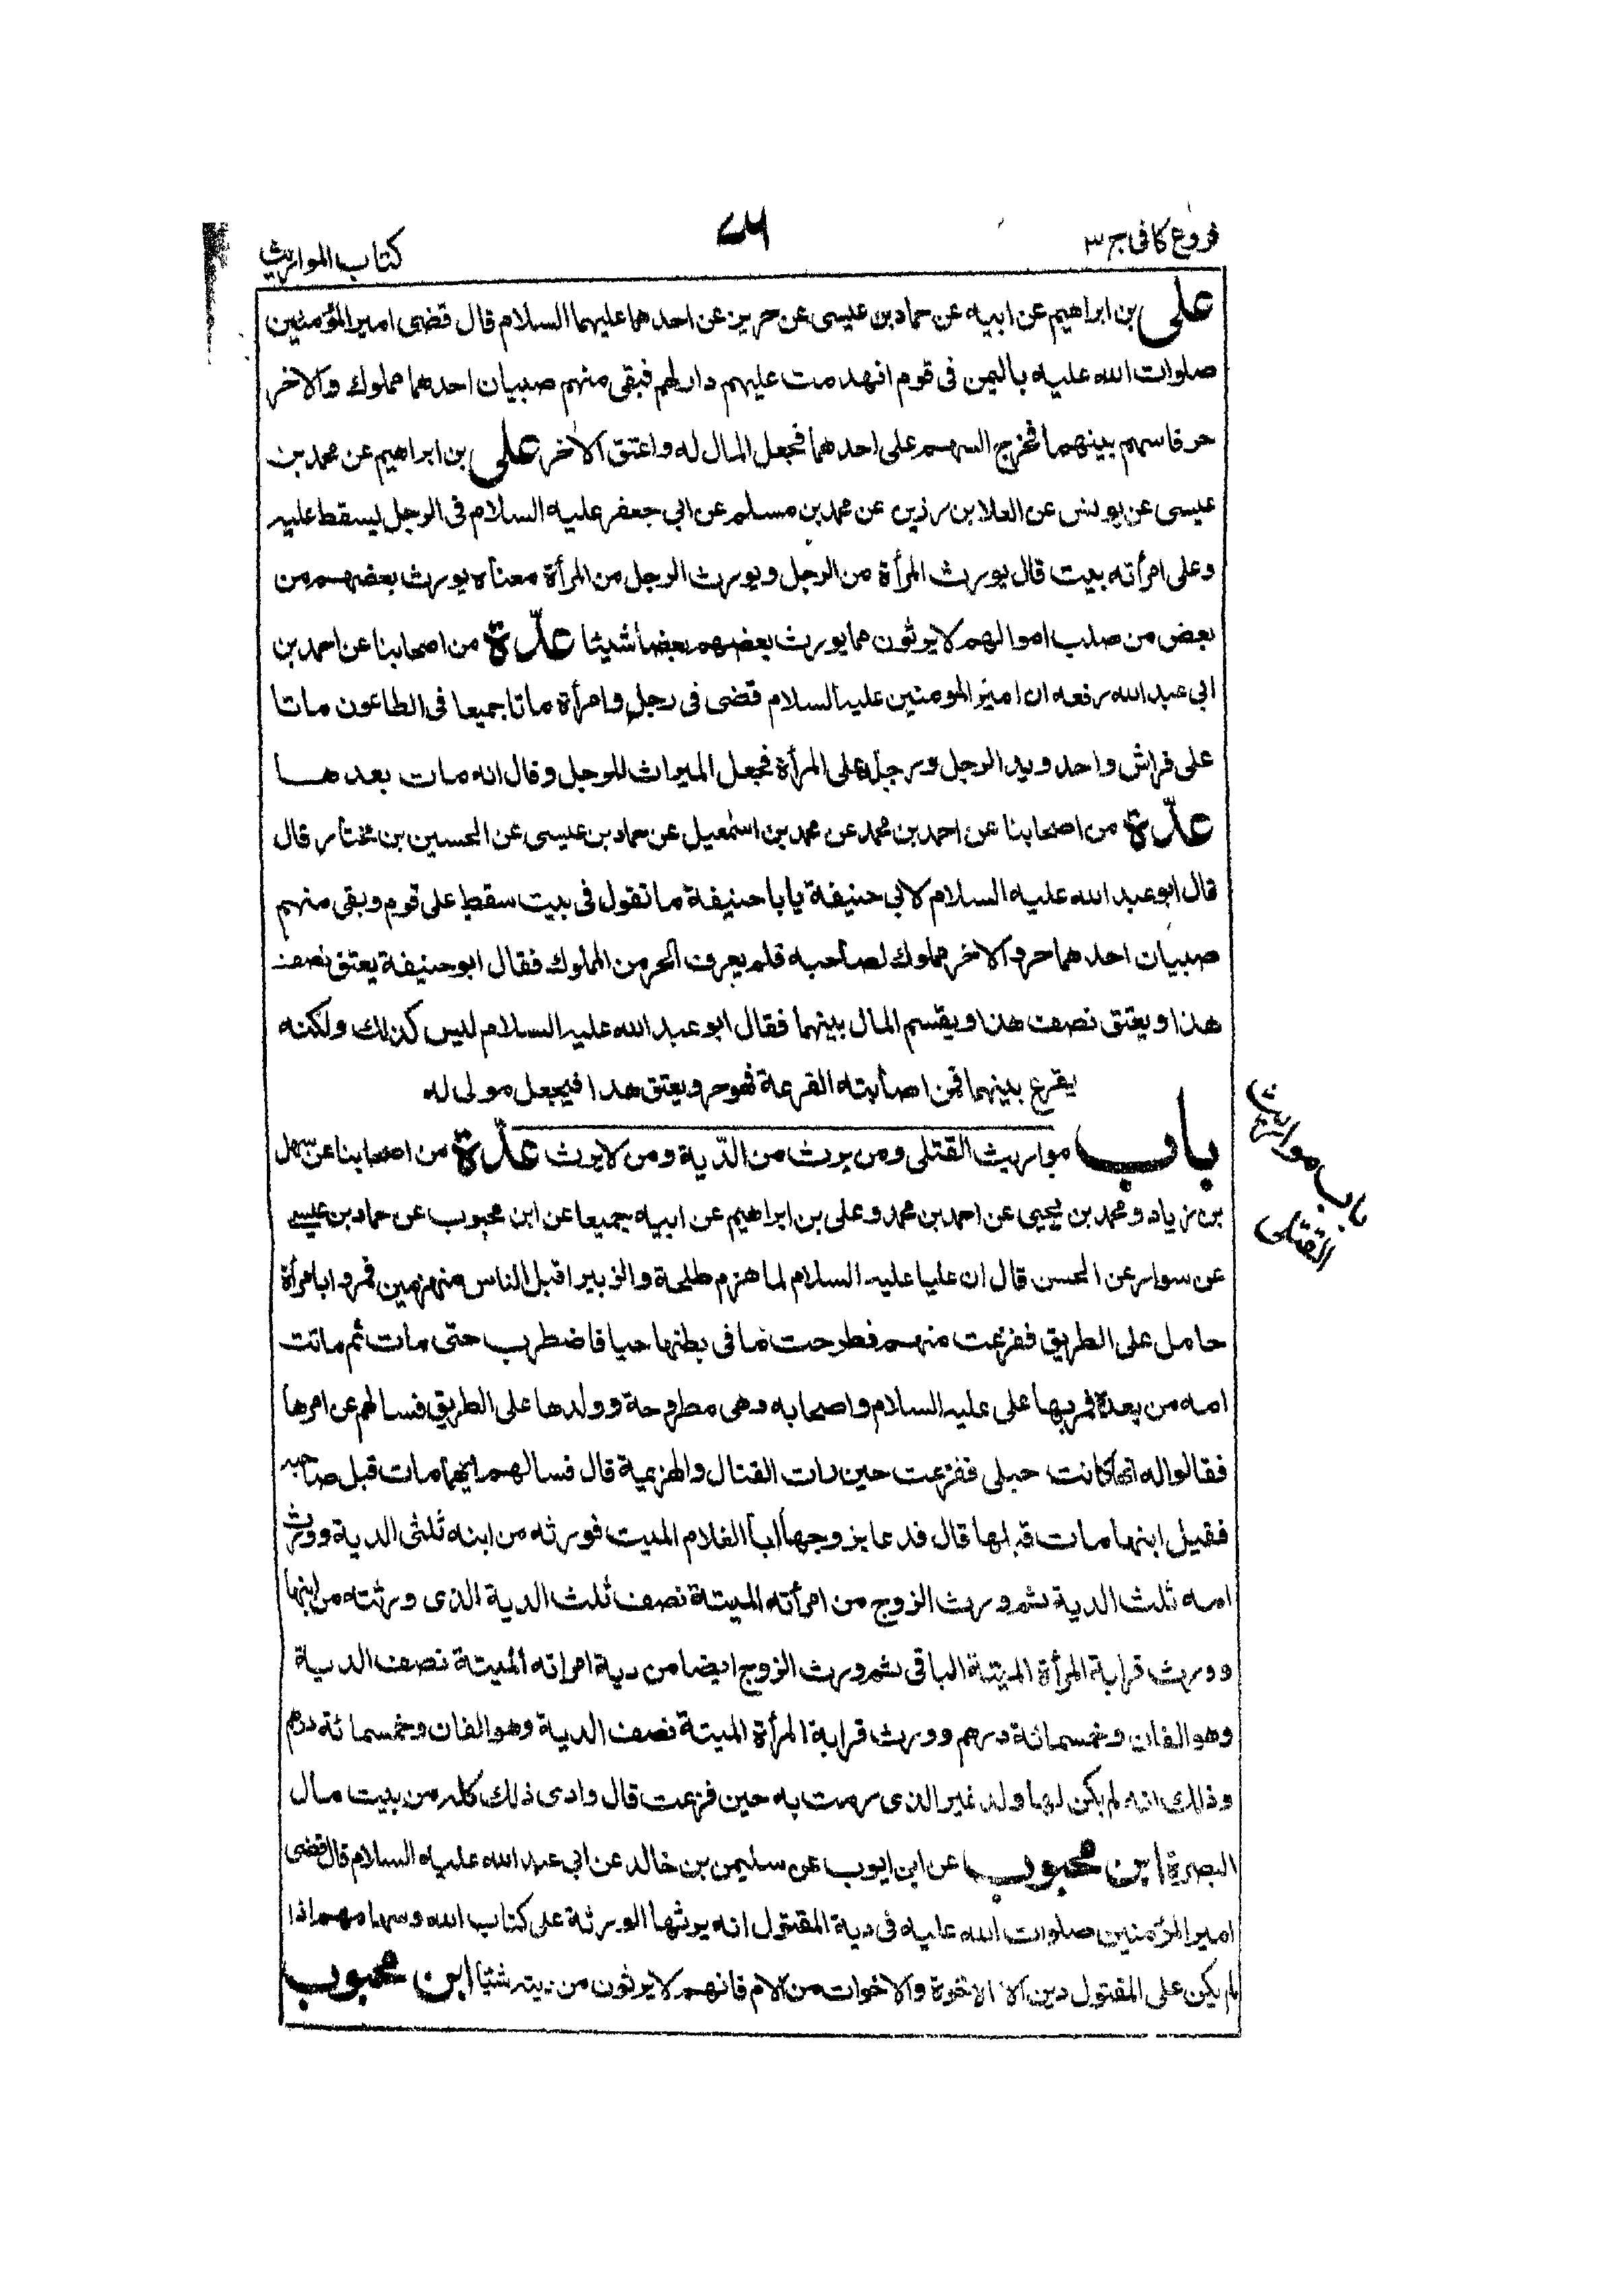 فروع كافى ج ٣
٧٦
كتاب المواريث
على بن ابراهيم عن ابيه عن حماد بن عيسى عن حريز عن احدهما عليهما السلام قال قضى امير المؤمنين
صلوات الله عليه باليمن فى قوم انهدمت عليهم دار لهم فبقى منهم صبيان احدهما مملوك والاخر
حر فاسهم بينهما فخرج السهم على احدهما فجعل المال له واعتق الاخر على بن ابراهيم عن محمد بن
عيسى عن يونس عن العلا بن رزين عن محمد بن مسلم عن ابي جعفر عليه السلام فى الرجل يسقط عليه
وعلى امرأته بيت قال يورث المرأة من الرجل ويورث الرجل من المرأة معناه يورث بعضهم من
بعض من صلب اموالهم لا يرثون مما يورث بعضهم بعضا شيئا عدّة من اصحابنا عن احمد بن
ابي عبد الله رفعه ان امير المومنين عليه السلام قضى فى رجل وامرأة ماتا جميعا فى الطاعون ماتا
على فراش واحد ويد الرجل ورجله على المرأة فجعل الميراث للرجل وقال انه مات بعدها
عدّة من اصحابنا عن احمد بن محمد عن محمد بن اسمعيل عن حماد بن عيسى عن الحسين بن مختار قال
قال ابو عبد الله عليه السلام لابي حنيفة يا با حنيفة ما تقول فى بيت سقط على قوم وبقى منهم
صبيان احدهما حر والاخر مملوك لصاحبه فلم يعرف الحر من المملوك فقال ابو حنيفة يعتق نصف
هذا ويعتق نصف هذا ويقسم المال بينهما فقال ابو عبد الله عليه السلام ليس كذلك ولكنه
يقرع بينهما فمن اصابته القرعة فهو حر ويعتق هذا فيجعل مولى له
باب مواريث القتلى ومن يرث من الدّية ومن لا يرث عدّة من اصحابنا عن سهل
بن زياد ومحمد بن يحيى عن احمد بن محمد وعلى بن ابراهيم عن ابيه جميعا عن ابن محبوب عن حماد بن عيسى
عن سوار عن الحسن قال ان عليا عليه السلام لما هزم طلحة والزبير اقبل الناس منهزمين فمروا بامرأة
حامل على الطريق ففزعت منهم فطرحت ما فى بطنها حيا فاضطرب حتى مات ثم ماتت
امه من بعده فمر بها على عليه السلام واصحابه وهى مطروحة وولدها على الطريق فسالهم عن امرها
فقالوا له انها كانت حبلى ففزعت حين رات القتال والهزيمة قال فسالهم ايهما مات قبل صاحبه
فقيل ابنها مات قبلها قال فدعا بزوجها ابا الغلام الميت فورثه من ابنه ثلثى الدية وورث
امه ثلث الدية ثم ورث الزوج من امرأته الميتة نصف ثلث الدية الذى ورثته من ابنها
وورث قرابة المرأة الميتة الباقى ثم ورث الزوج ايضا من دية امراته الميتة نصف الدية
وهو الفان وخمسمائة درهم وورث قرابة المرأة الميتة نصف الدية وهو الفان وخمسمائة درهم
وذلك انه لم يكن لها ولد غير الذى رمت به حين فزعت قال وادى ذلك كله من بيت مال
البصرة ابن محبوب عن ابى ايوب عن سليمن بن خالد عن ابي عبد الله عليه السلام قال قضى
امير المؤمنين صلوات الله عليه فى دية المقتول انه يرثها الورثة على كتاب الله وسهامهم اذا
لم يكن على المقتول دين الا الاخوة والاخوات من الام فانهم لا يرثون من ديته شيئا ابن محبوب
باب مواريث
القتلى